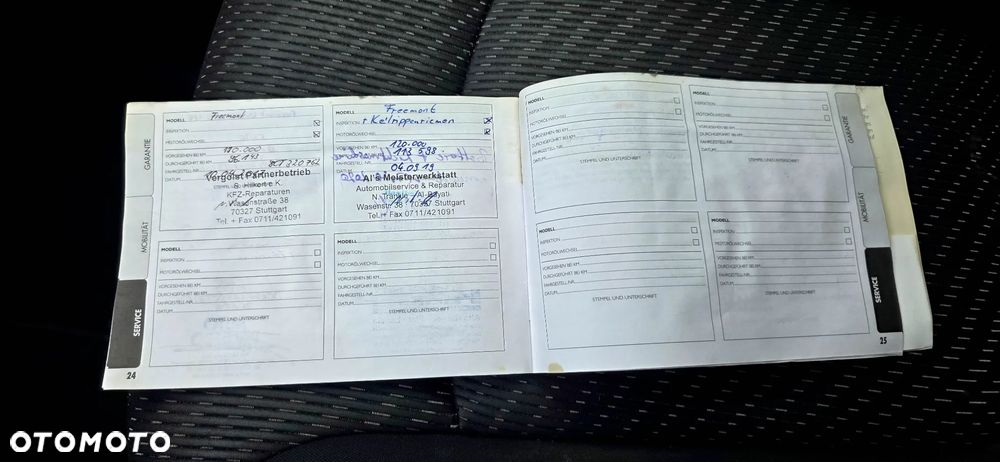 GARANTIE
MOBILITÄT
SERVICE
24
MODELL Freemont
INSPEKTION
MOTORÖLWECHSEL
VORGESEHEN BEI KM 110.000
DURCHGEFÜHRT BEI KM
FAHRGESTELL-NR.
DATUM
Vergölst Partnerbetrieb
KFZ-Reparaturen
Wasenstraße 38
70327 Stuttgart
Tel. + Fax 0711/421091
MODELL Freemont
INSPEKTION + Keilrippenriemen
MOTORÖLWECHSEL
VORGESEHEN BEI KM 120.000
DURCHGEFÜHRT BEI KM 113 538
FAHRGESTELL-NR.
DATUM 04.09.19
Al's Meisterwerkstatt
Automobilservice & Reparatur
Wasenstr. 38 · 70327 Stuttgart
Tel.+ Fax 0711/421091
MODELL
INSPEKTION
MOTORÖLWECHSEL
VORGESEHEN BEI KM
DURCHGEFÜHRT BEI KM
FAHRGESTELL-NR.
DATUM
STEMPEL UND UNTERSCHRIFT
MODELL
INSPEKTION
MOTORÖLWECHSEL
VORGESEHEN BEI KM
DURCHGEFÜHRT BEI KM
FAHRGESTELL-NR.
DATUM
STEMPEL UND UNTERSCHRIFT
MODELL
INSPEKTION
MOTORÖLWECHSEL
VORGESEHEN BEI KM
DURCHGEFÜHRT BEI KM
FAHRGESTELL-NR.
DATUM
STEMPEL UND UNTERSCHRIFT
MODELL
INSPEKTION
MOTORÖLWECHSEL
VORGESEHEN BEI KM
DURCHGEFÜHRT BEI KM
FAHRGESTELL-NR.
DATUM
STEMPEL UND UNTERSCHRIFT
MODELL
INSPEKTION
MOTORÖLWECHSEL
VORGESEHEN BEI KM
DURCHGEFÜHRT BEI KM
FAHRGESTELL-NR.
DATUM
STEMPEL UND UNTERSCHRIFT
MODELL
INSPEKTION
MOTORÖLWECHSEL
VORGESEHEN BEI KM
DURCHGEFÜHRT BEI KM
FAHRGESTELL-NR.
DATUM
STEMPEL UND UNTERSCHRIFT
GARANTIE
MOBILITÄT
SERVICE
25
OTOMOTO